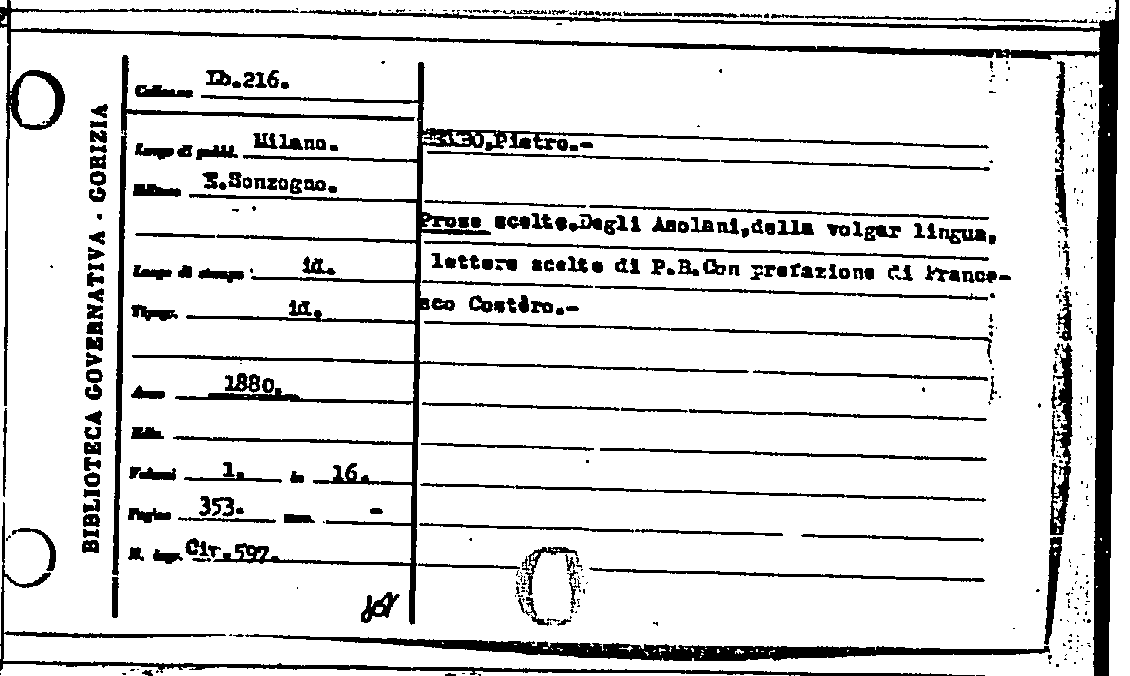 BIBLIOTECA GOVERNATIVA - GORIZIA
Collocaz. Lb.216.
Luogo di pubbl. Milano.
Editore E.Sonzogno.
Luogo di stampa id.
Tipogr. id.
Anno 1880.
Ediz.
Volumi 1. in 16.
Pagine 353. -
N. ingr. Cir.597.
Pietro.-
Prose scelte.Degli Asolani,della volgar lingua,
lettere scelte di P.B.Con prefazione di France-
sco Costèro.-